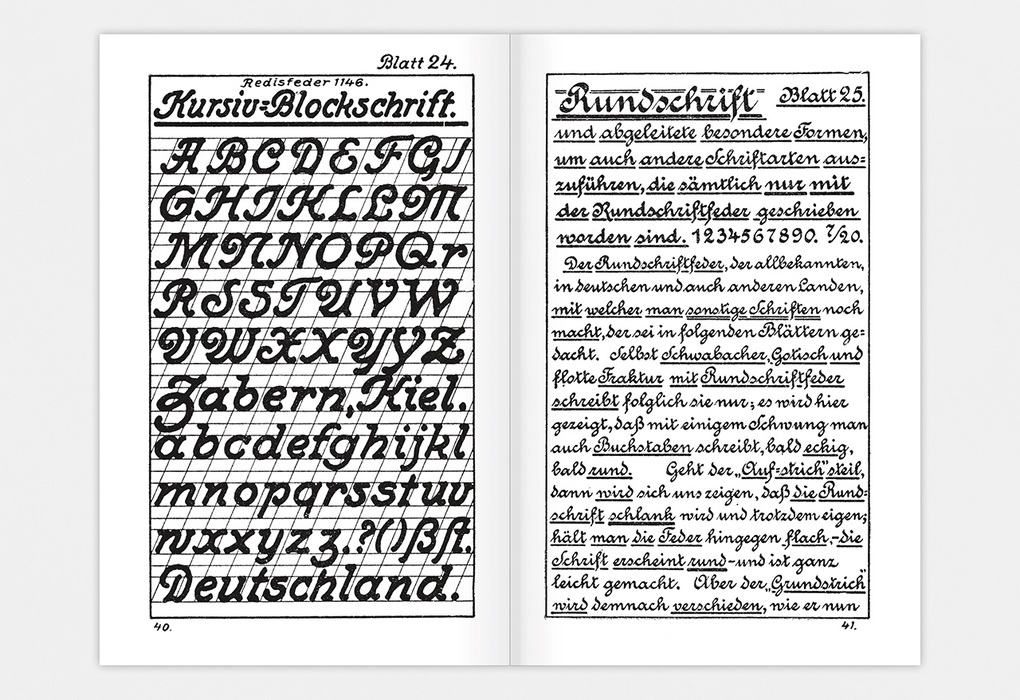 Blatt 24.
Redisfeder 1146.
Kursiv=Blockschrift.
ABCDEFGI
GHIKLLMM
MNNOPQr
RSSTUVW
VWXXYYZ
Zabern, Kiel.
abcdefghijkl
mnopqrsstuv
wxxyzz.?()ßſt.
Deutschland.
40.
Rundschrift Blatt 25.
und abgeleitete besondere Formen,
um auch andere Schriftarten aus=
zuführen, die sämtlich nur mit
der Rundschriftfeder geschrieben
worden sind. 1234567890. 7/20.
Der Rundschriftfeder, der allbekannten,
in deutschen und auch anderen Landen,
mit welcher man sonstige Schriften noch
macht, der sei in folgenden Blättern ge=
dacht. Selbst Schwabacher, Gotisch und
flotte Fraktur mit Rundschriftfeder
schreibt folglich sie nur; es wird hier
gezeigt, daß mit einigem Schwung man
auch Buchstaben schreibt, bald eckig,
bald rund. Geht der „Auf=strich" steil,
dann wird sich uns zeigen, daß die Rund=
schrift schlank wird und trotzdem eigen;
hält man die Feder hingegen flach,-die
Schrift erscheint rund-und ist ganz
leicht gemacht. Aber der „Grundstrich"
wird demnach verschieden, wie er nun
41.